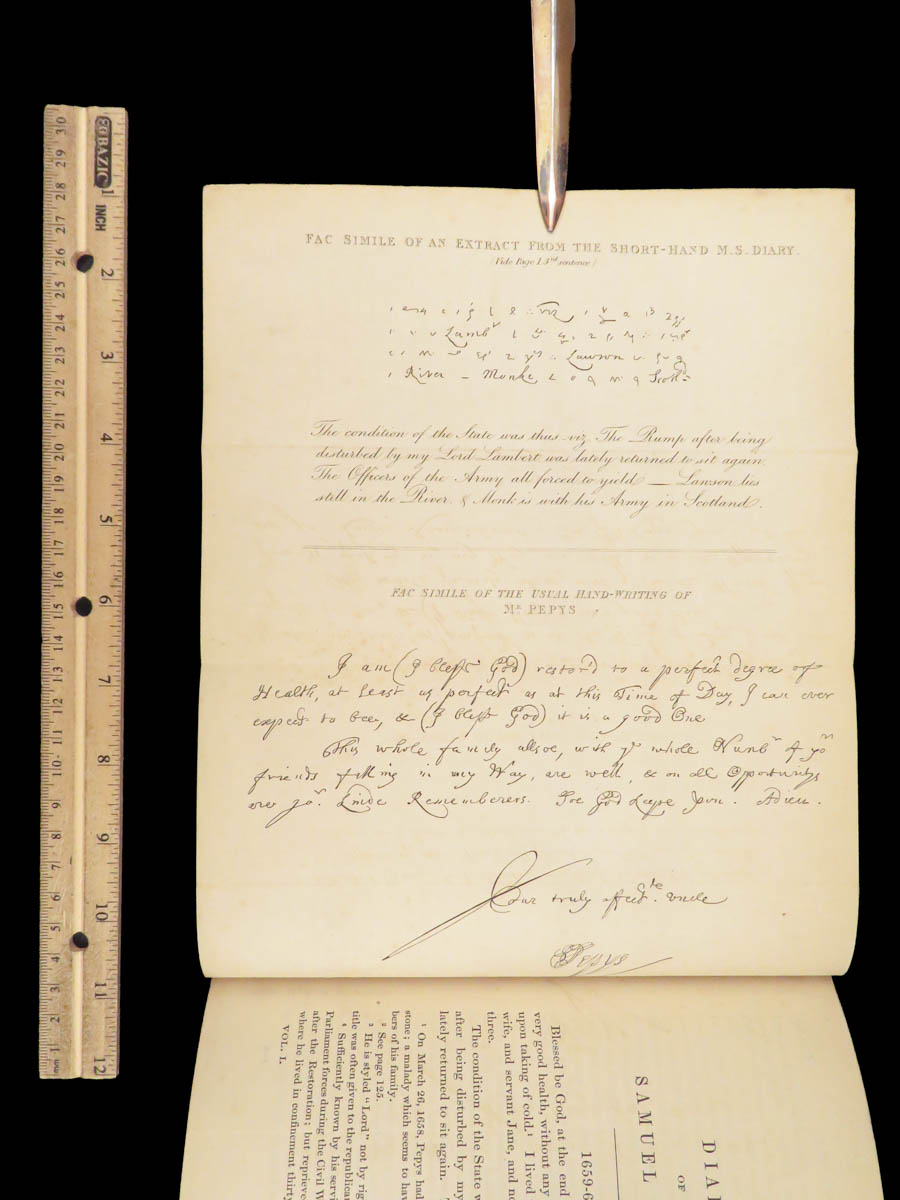 FAC SIMILE OF AN EXTRACT FROM THE SHORT-HAND M.S. DIARY.
(Vide Page 1 3rd sentence)
viz
Lamb
Lawson
River Monke Scotld
The condition of the State was thus viz. The Rump after being
disturbed by my Lord Lambert was lately returned to sit again
The Officers of the Army all forced to yield — Lawson lies
still in the River & Monk is with his Army in Scotland.
FAC SIMILE OF THE USUAL HAND-WRITING OF
Mr. PEPYS
I am (I bless God) restor'd to a perfect degree of
Health, at least as perfect as at this Time of Day, I can ever
expect to bee, & (I bless God) it is a good One
This whole family allsoe, with ye whole Numbr of yor
friends falling in my Way, are well, & on all Opportunitys
are yor. Kinde Rememberers. Soe God keepe you. Adieu.
Your truly affectte. Uncle
SPepys
DIA
OF
SAMUEL
1659-6
Blessed be God, at the end
very good health, without any
upon taking of cold.1 I lived
wife, and servant Jane, and no
three.
The condition of the State w
after being disturbed by my
lately returned to sit again.
1 On March 26, 1658, Pepys had
stone; a malady which seems to hav
bers of his family.
2 See page 125.
3 He is styled "Lord" not by rig
title was often given to the republica
4 Sufficiently known by his servi
Parliament forces during the Civil W
after the Restoration; but reprieve
where he lived in confinement thirty
VOL. I.
BAZIC
INCH
1
2
3
4
5
6
7
8
9
10
11
12
30
29
28
27
26
25
24
23
22
21
20
19
18
17
16
15
14
13
12
11
10
9
8
7
6
5
4
3
2
1
mm